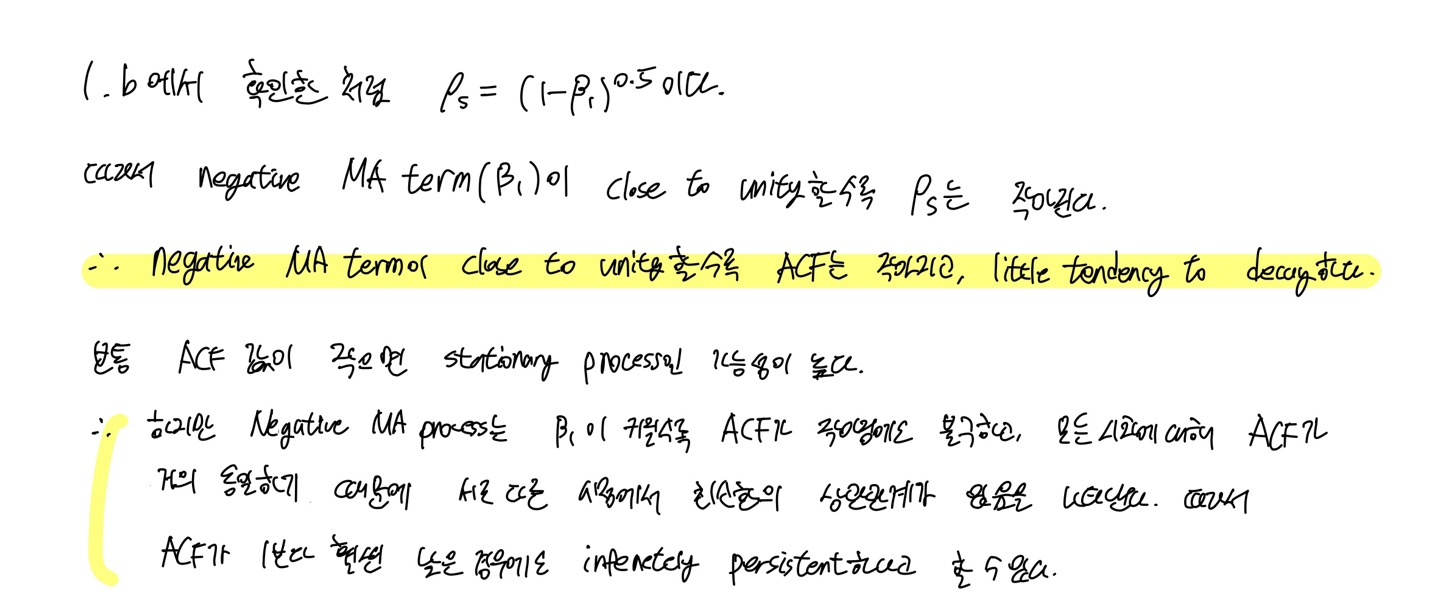 1.b에서 확인한 처럼 ρₛ = (1-β₁)^0.5 이다.
따라서 negative MA term(β₁)이 close to unity할수록 ρₛ는 작아진다.
∴ negative MA term이 close to unity할수록 ACF는 작아지고, little tendency to decay하다.
보통 ACF 값이 작으면 stationary process일 가능성이 높다.
∴ 하지만 Negative MA process는 β₁이 커질수록 ACF가 작아짐에도 불구하고, 모든 시차에 대해 ACF가
거의 동일하기 때문에 서로 다른 시점에서 확률변수의 상관관계가 있음을 나타낸다. 따라서
ACF가 1보다 훨씬 낮은 경우에도 infenetely persistent하다고 할 수 있다.